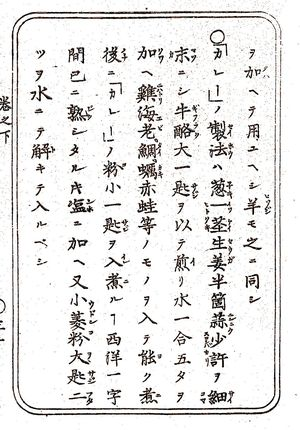 ヲ加ヘテ用ユヘシ羊モ之ニ同シ
○「カレー」ノ製法ハ葱一茎生姜半箇蒜少許ヲ細
末ニシ牛酪大一匙ヲ以テ煎リ水一合五タヲ
加ヘ鶏海老鯛蠣赤蛙等ノモノヲ入テ能ク煮
後ニ「カレー」ノ粉小一匙ヲ入煮ルヿ西洋一字
間已ニ熟シタルキ塩ニ加ヘ又小麦粉大匙二
ツヲ水ニテ解キテ入ルベシ
巻之下